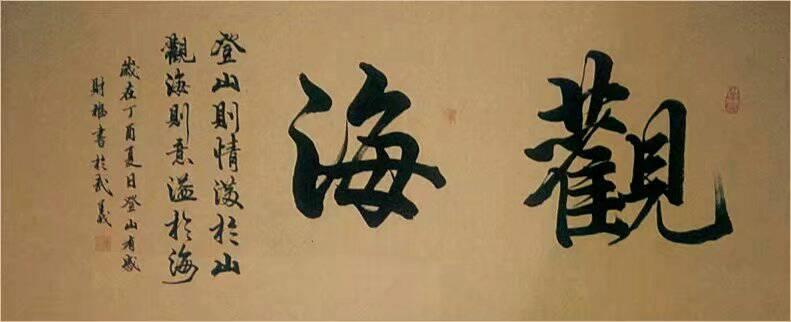 觀海
登山則情滿於山
觀海則意溢於海
歲在丁酉夏日登山有感
財根書於武義